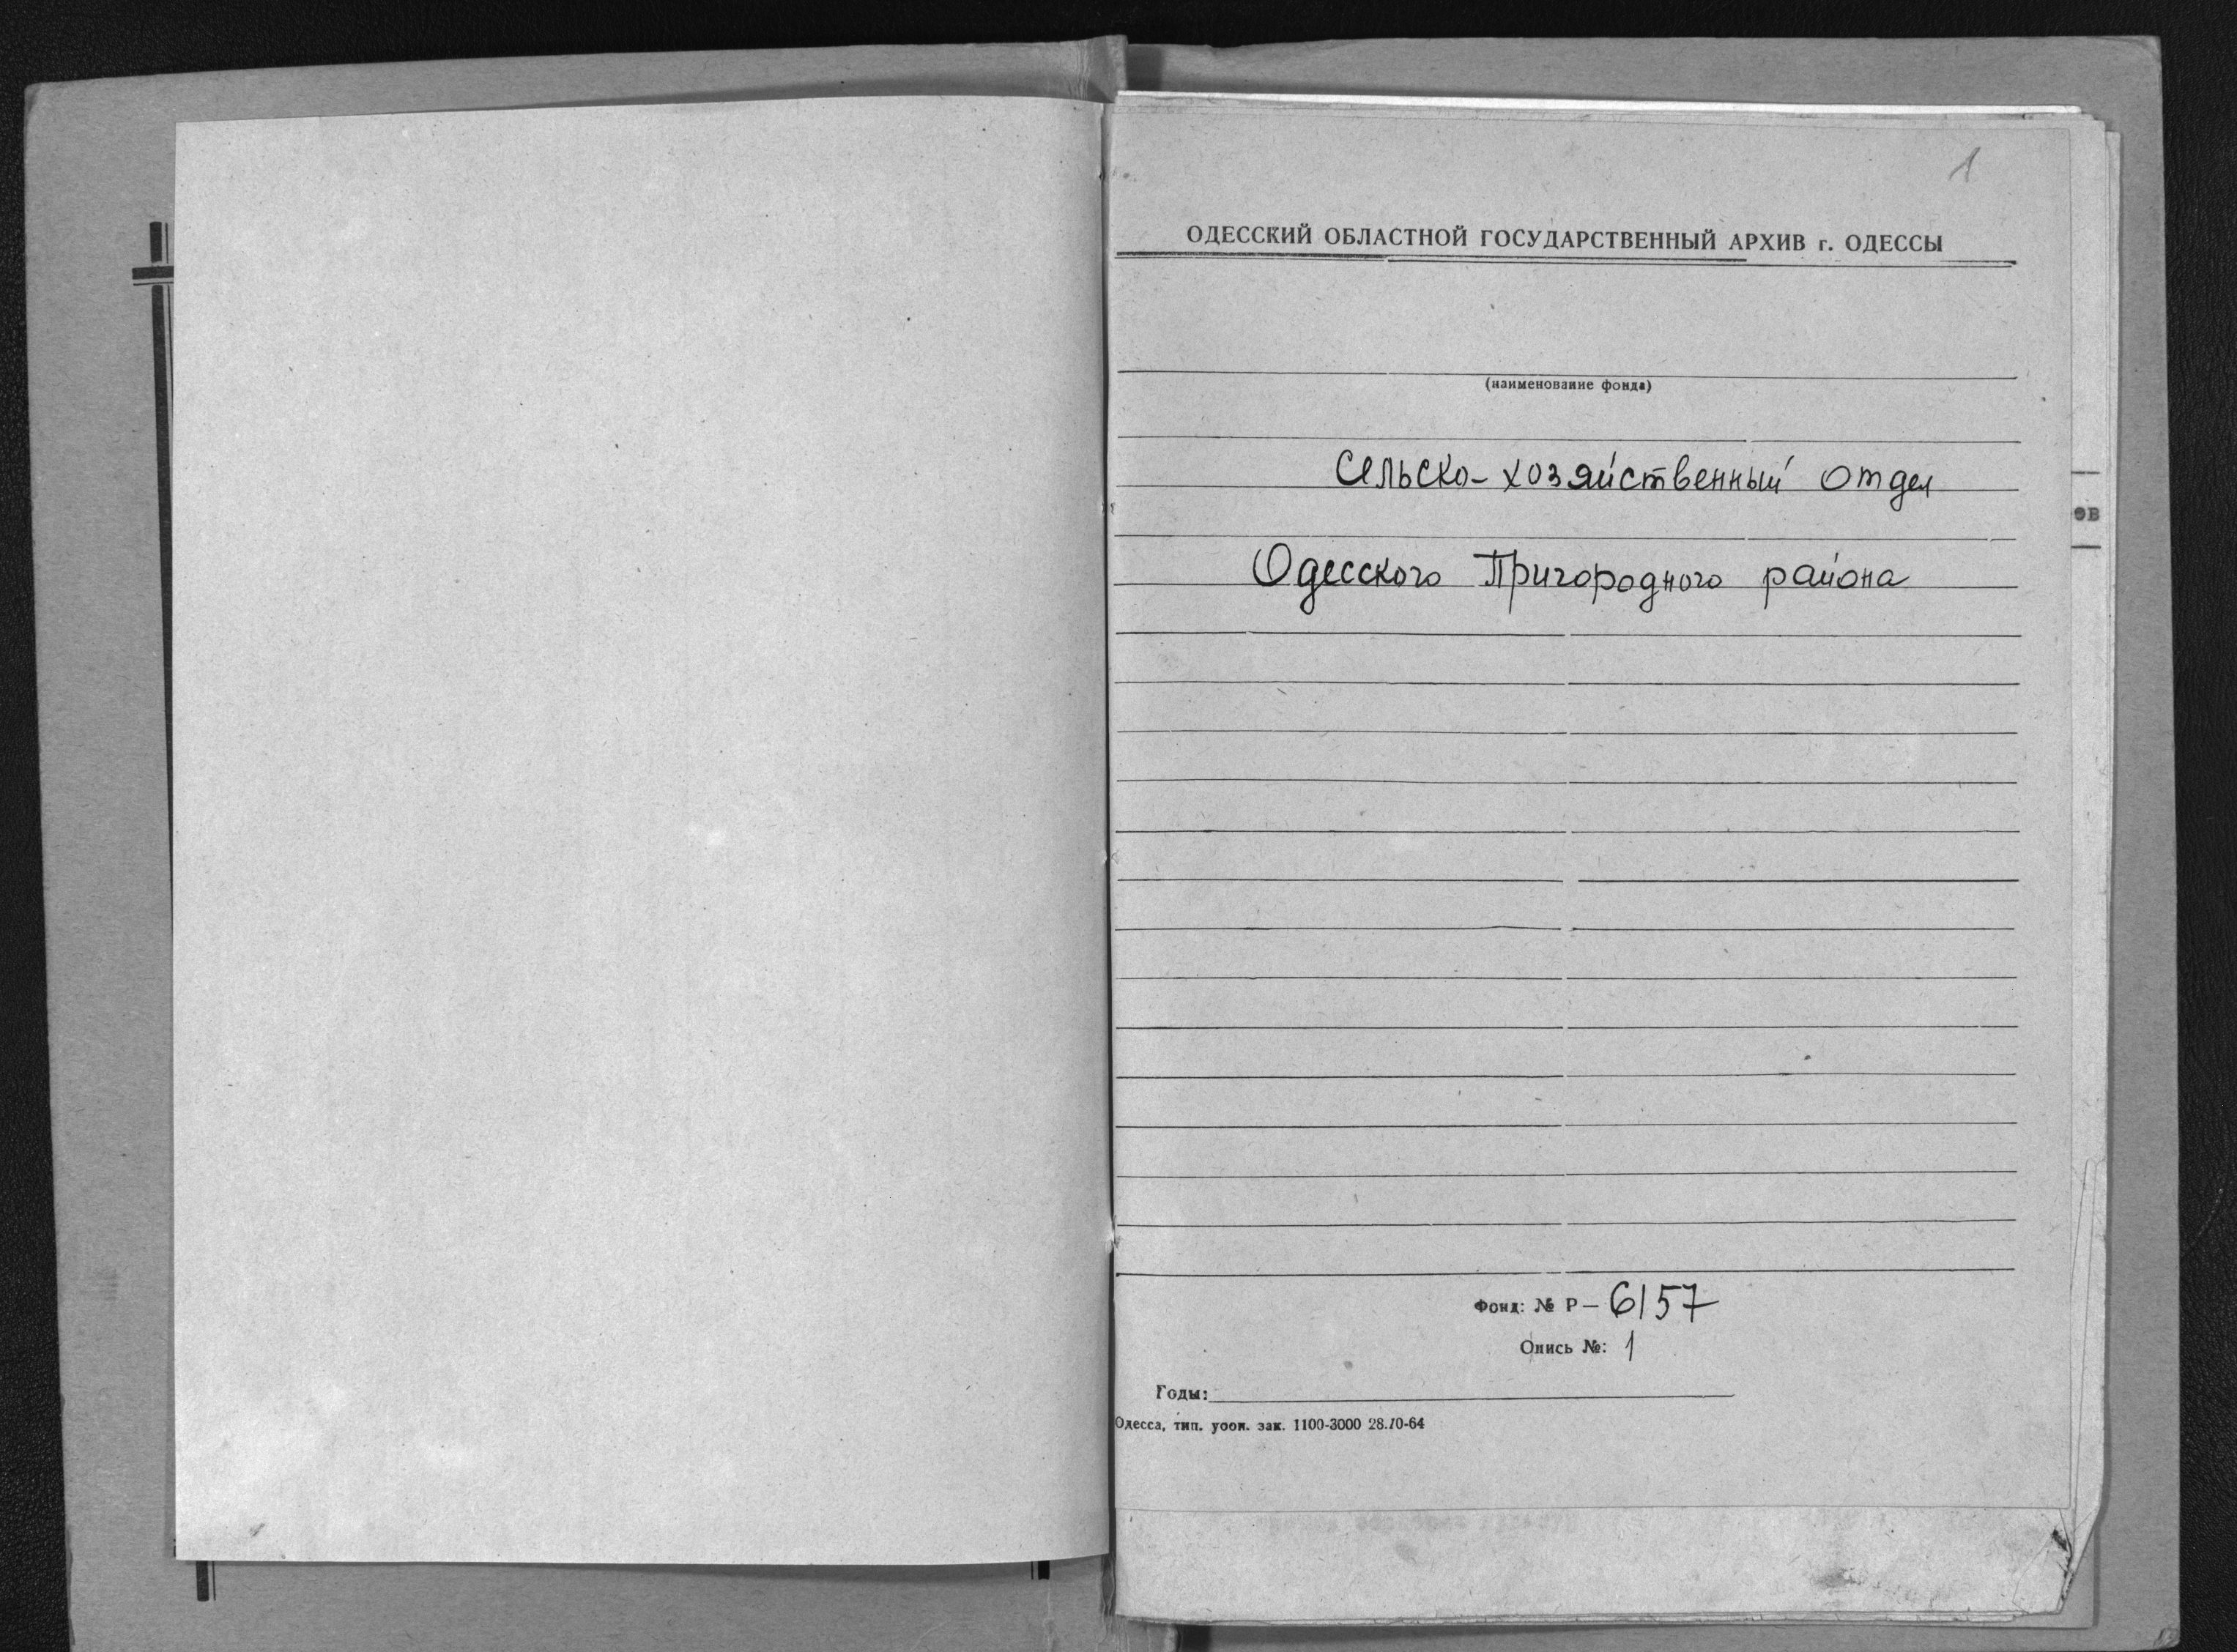 1
ОДЕССКИЙ ОБЛАСТНОЙ ГОСУДАРСТВЕННЫЙ АРХИВ г. ОДЕССЫ
(наименование фонда)
Сельско-хозяйственный отдел
ов
Одесского Пригородного района
Фонд: № Р— 6157
Опись №: 1
Годы:
Одесса, тип. уоои. зак. 1100-3000 28.10-64